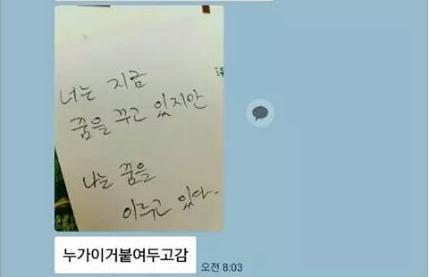 너는 지금
꿈을 꾸고 있지만
나는 꿈을
이루고 있다.
누가이거붙여두고감
오전 8:03